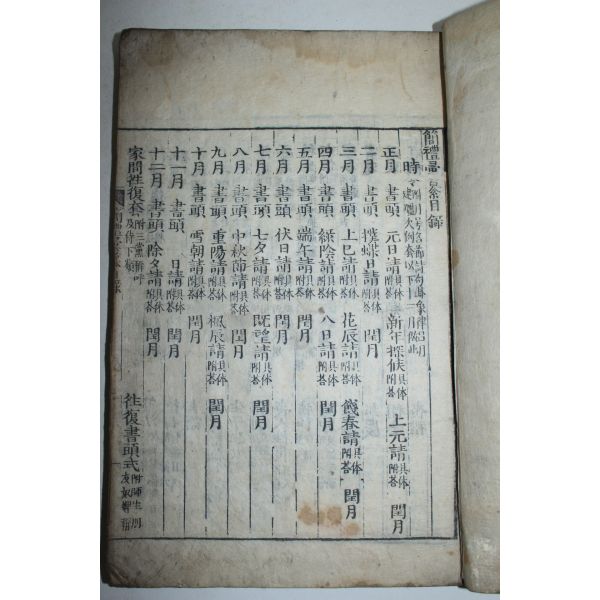 簡禮 目錄
時
正月 書頭 元日請具体附荅 新年探候具体附荅 上元請具体附荅 閏月
二月 書頭 日請具体附荅 閏月
三月 書頭 上巳請具体附荅 花辰請具体附荅 餞春請具体附荅 閏月
四月 書頭 綠陰請具体附荅 八日請具体附荅 閏月
五月 書頭 端午請具体附荅 閏月
六月 書頭 伏日請具体附荅 閏月
七月 書頭 七夕請具体附荅 旣望請具体附荅 閏月
八月 書頭 中秋節請具体附荅 閏月
九月 書頭 重陽請具体附荅 楓辰請具体附荅 閏月
十月 書頭 雪朝請具体附荅 閏月
十一月 書頭 日請具体附荅 閏月
十二月 書頭 除夕請具体附荅 閏月
家間徃復套 徃復書頭式